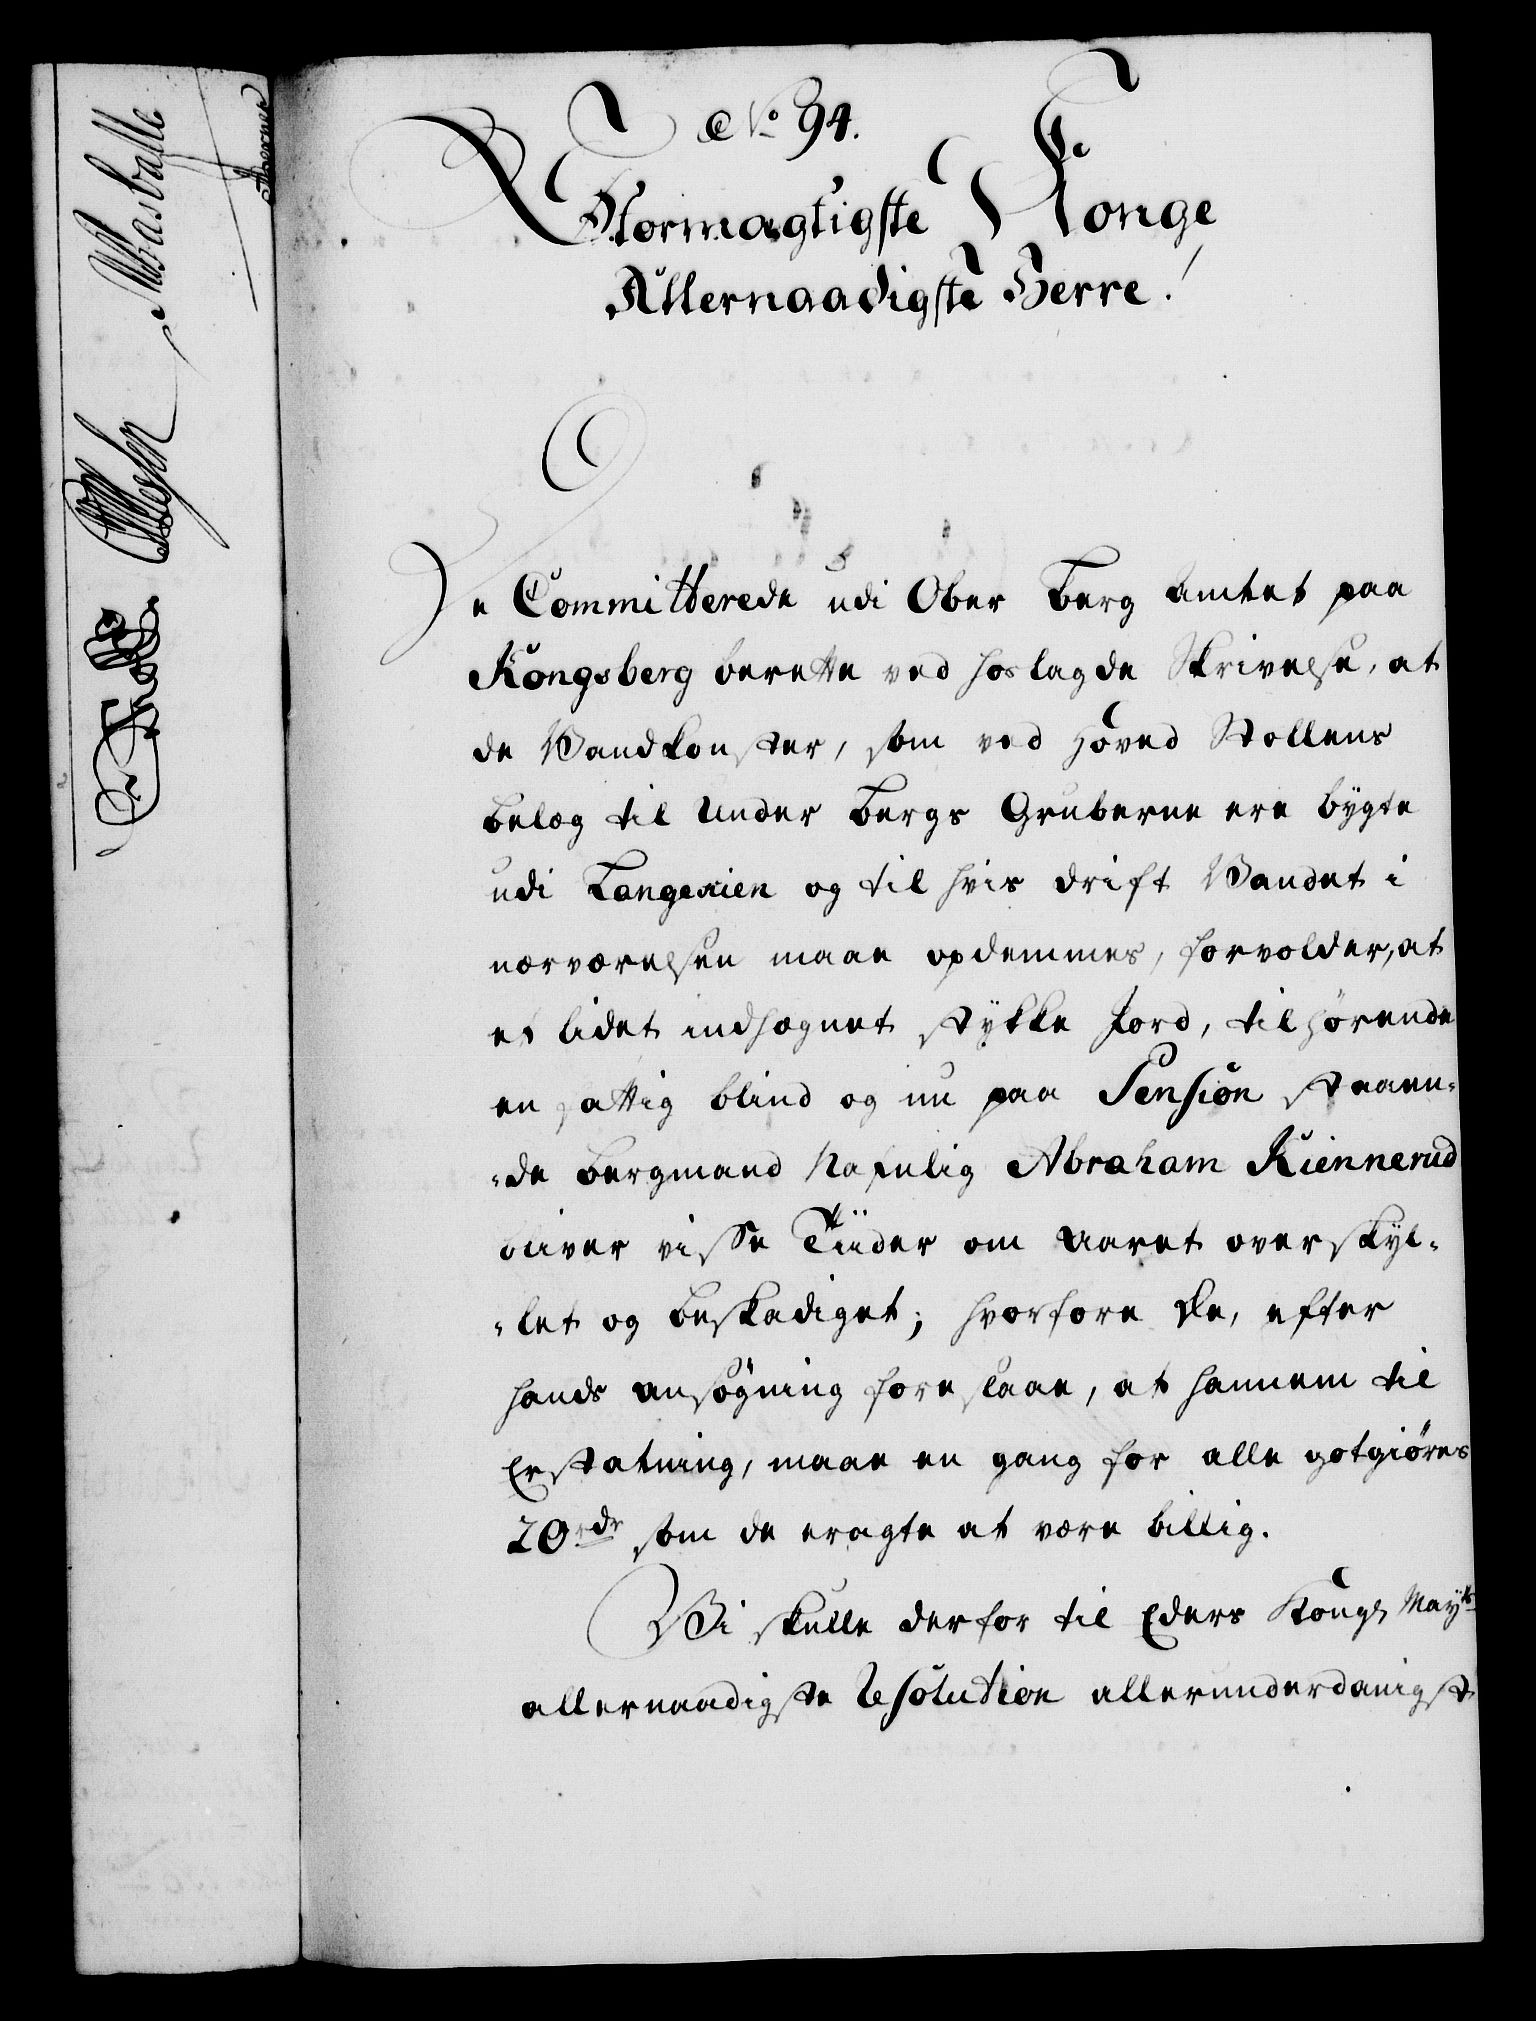 No 94.
Stormægtigste Konge
Allernaadigste Herre!
De Committerede udi Ober Berg Amtet paa
Kongsberg berette ved hoslagde Skrivelse, at
de Vandkonster, som ved Hoved Stollens
belæg til Under Bergs Gruberne ere bygte
udi og til hvis drift Vandet i
nærværelsen maae opdemmes, forvolder, at
et lidet indhægnet stykke Jord, tilhørende
en fattig blind og nu paa Pension staaen-
-de Bergmand Nafnlig Abraham Kiennerud
bliver visse Tiider om Aaret overskyl-
-let og beskadiget; hvorfore De, efter
hands ansøgning foreslaae, at hannem til
Erstatning, maae en gang for alle gotgiøres
20 rdr som de eragte at være billig.
Vi skulle derfor til Eders Kongl Mayts
allernaadigste Resolution allerunderdanigst